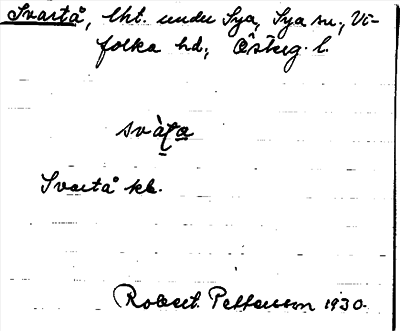 Svartå, lht. under Sya, Sya sn., Vi-
folka hd., Östug. l.
svàťa
Svartå kb.
Robert Pettersson 1930.